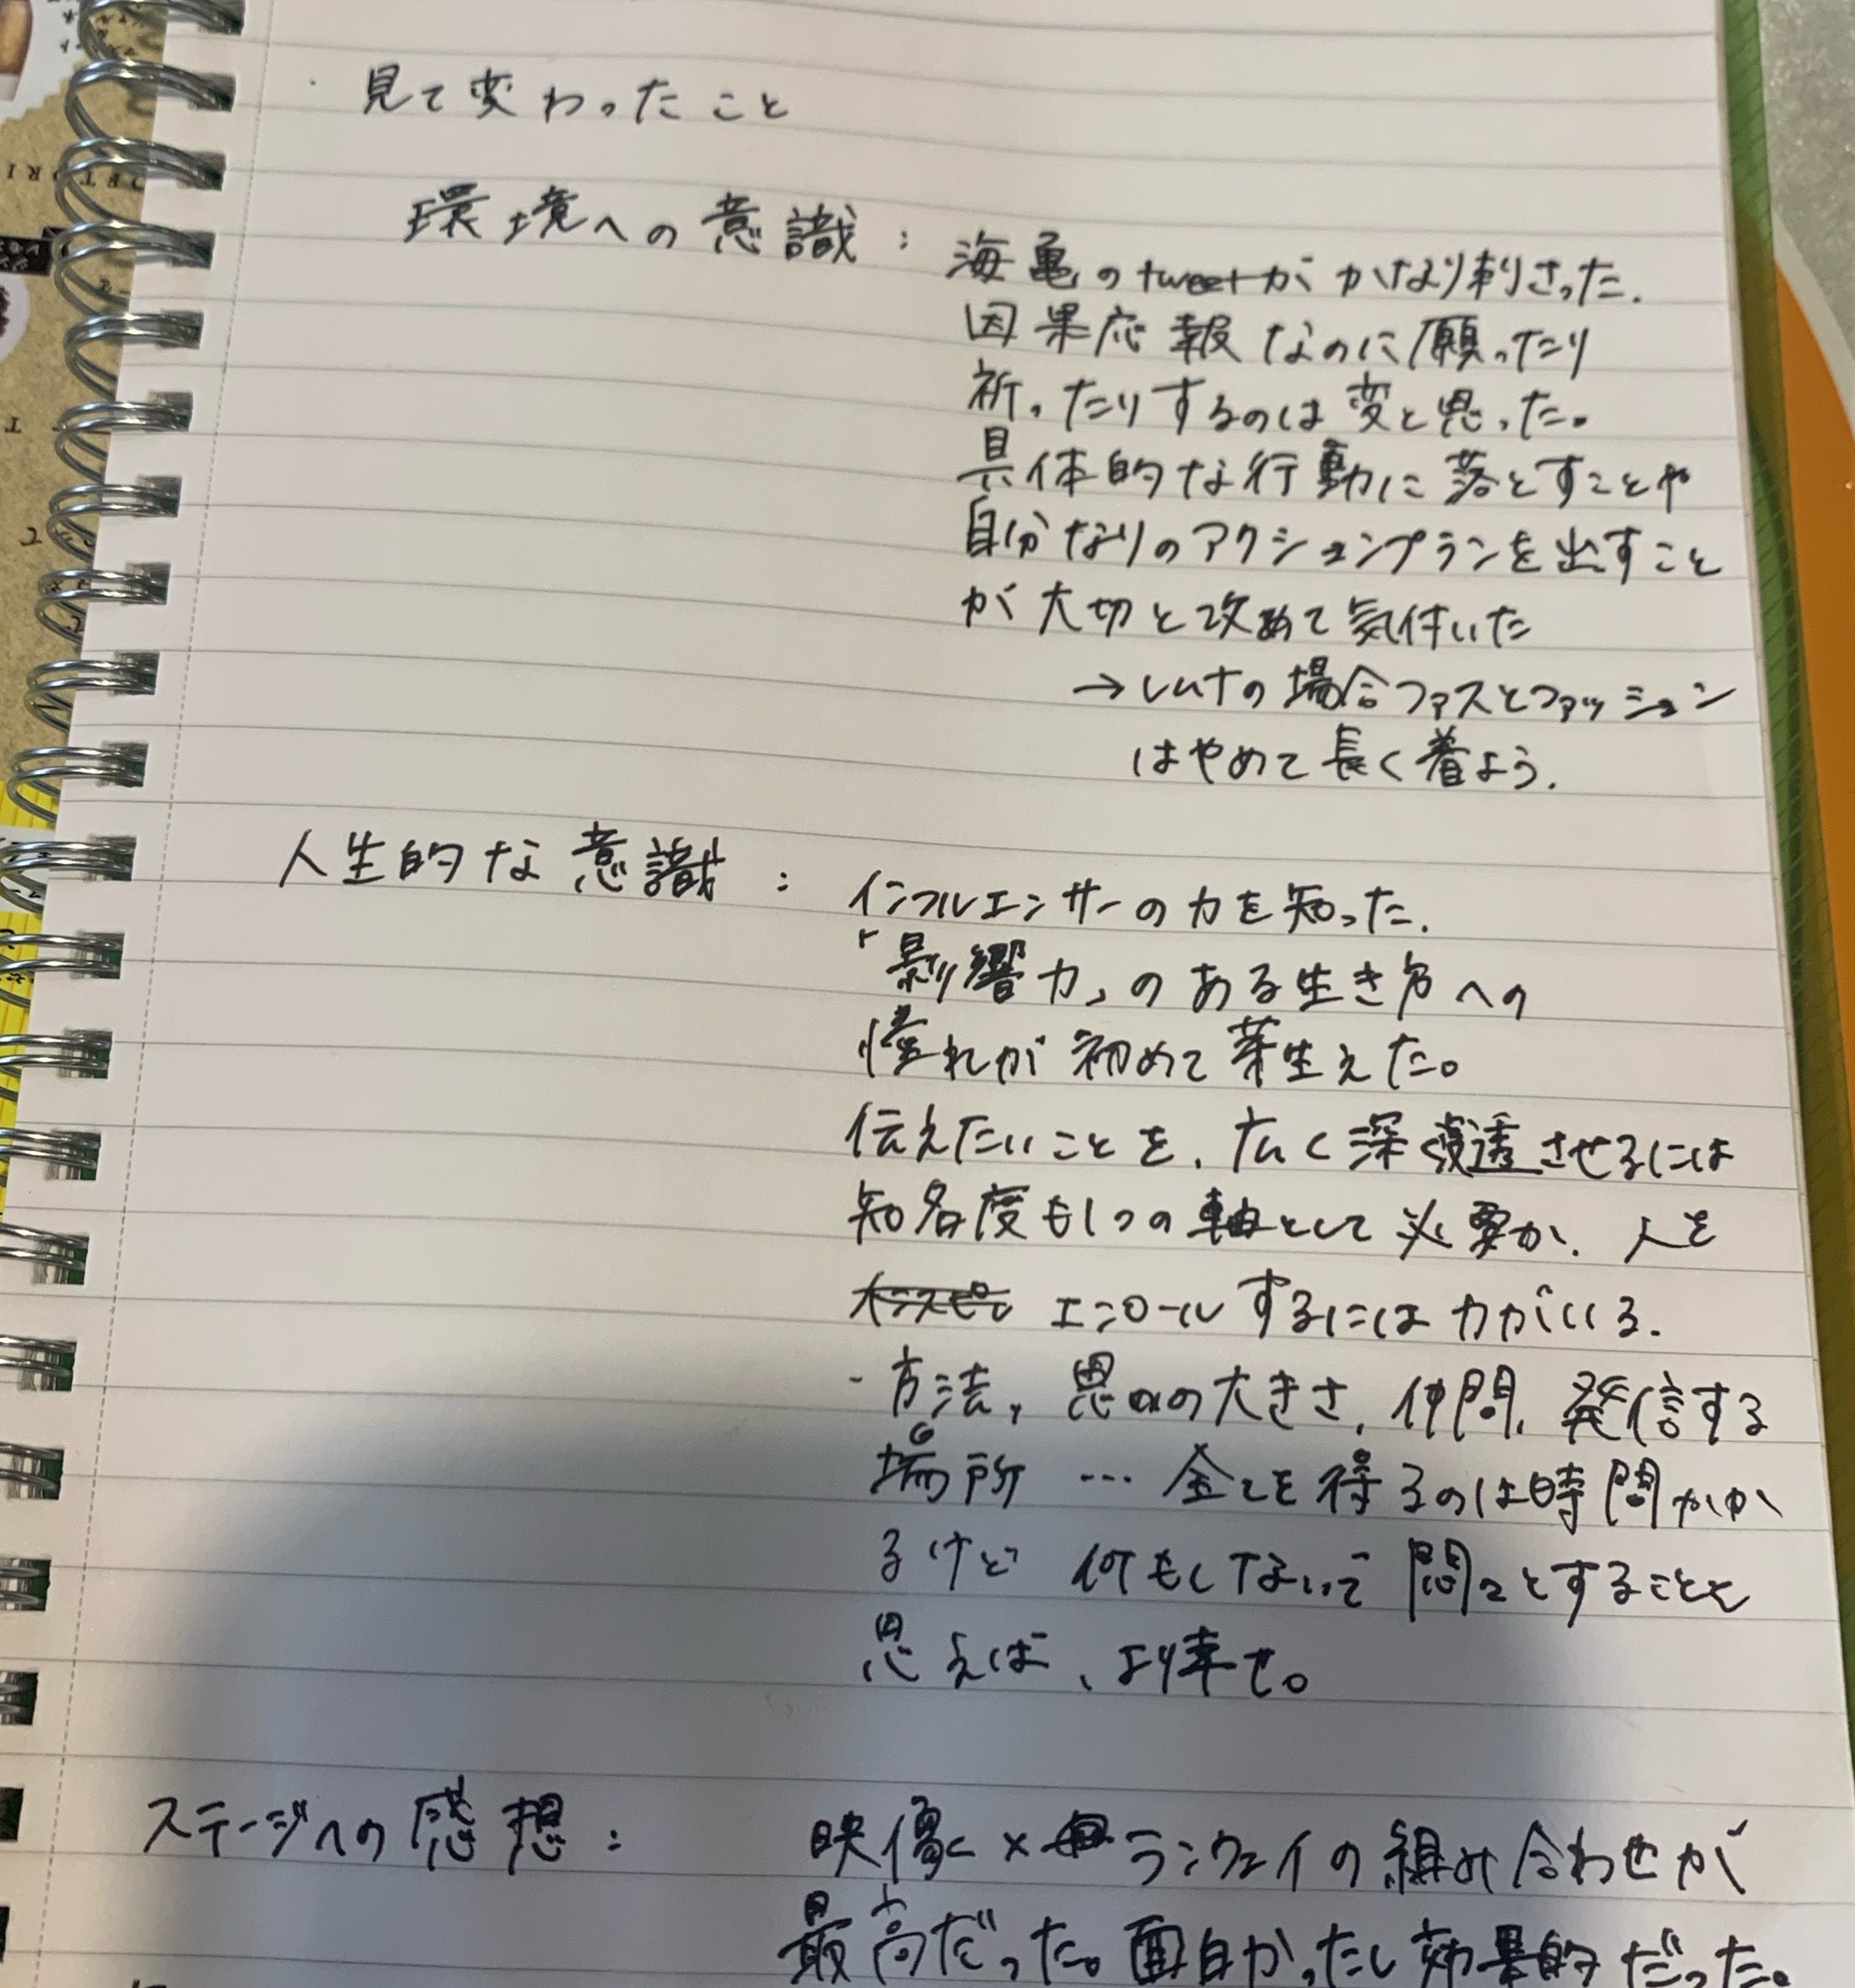 ・見て変わったこと
環境への意識：海亀のtweetがかなり刺さった.
因果応報なのに願ったり
祈ったりするのは変と思った。
具体的な行動に落とすことや
自分なりのアクションプランを出すこと
が大切と改めて気付いた
→レムナの場合ファストファッション
はやめて長く着よう.
人生的な意識：インフルエンサーの力を知った.
「影響力」のある生き方への
憧れが初めて芽生えた。
伝えたいことを、広く深く浸透させるには
知名度も1つの軸として必要か、人を
エンロールするには力がいる.
-方法,思いの大きさ,仲間,発信する
場所…全てを得るのは時間かか
るけど 何もしないで悶々とすることを
思えば、より幸せ。
ステージへの感想：映像×ランウェイの組み合わせが
最高だった。面白かったし効果的だった。